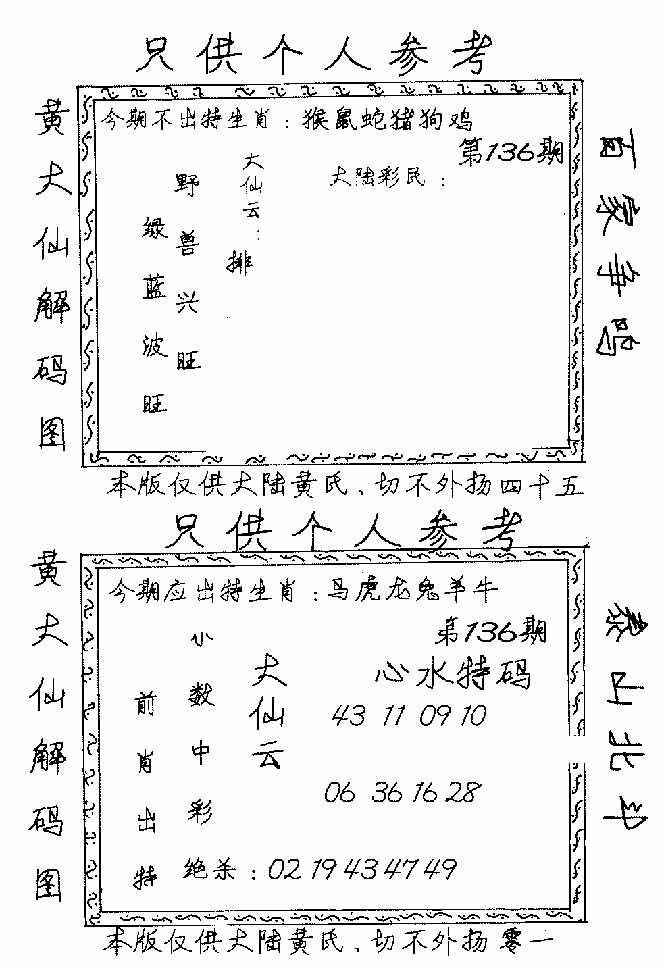 只供个人参考
黄大仙解码图
今期不出特生肖：猴鼠蛇猪狗鸡
第136期
大陆彩民：
大仙云：
排
野兽兴旺
绿蓝波旺
百家争鸣
本版仅供大陆黄氏、切不外扬四十五
只供个人参考
黄大仙解码图
今期应出特生肖：马虎龙兔羊牛
第136期
心水特码
43 11 09 10
06 36 16 28
大仙云
小数中彩
前肖出特
绝杀：02 19 43 47 49
泰山北斗
本版仅供大陆黄氏、切不外扬零一